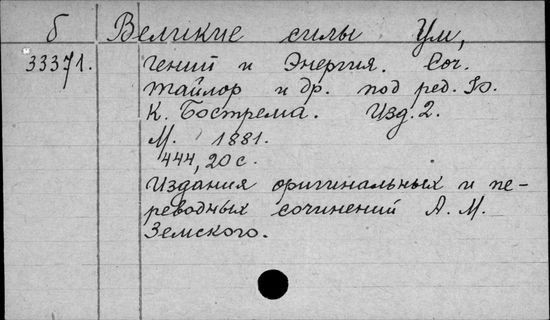 б Великие силы Ум,
33371. Гений и Энергия. Соч.
Тайлор и др. под ред. Ф.
К. Бострема. Изд. 2.
М. 1881.
444, 20 с.
Издания оригинальных и пе-
реводных сочинений А. М.
Земского.